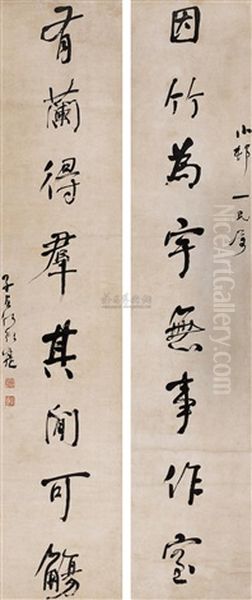 小邨
因竹為宇無事作室
有蘭得羣其間可觴
子貞何紹基